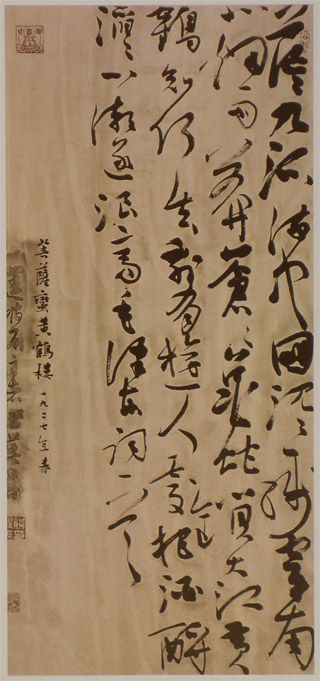 茫々九派流中國沉々一綫穿南
北烟雨莽蒼々龜蛇鎖大江黄
鶴知何去剩有遊人處把酒酹
滔々心潮逐浪高毛澤東词一首
菩薩蠻黄鶴樓一九二七年春